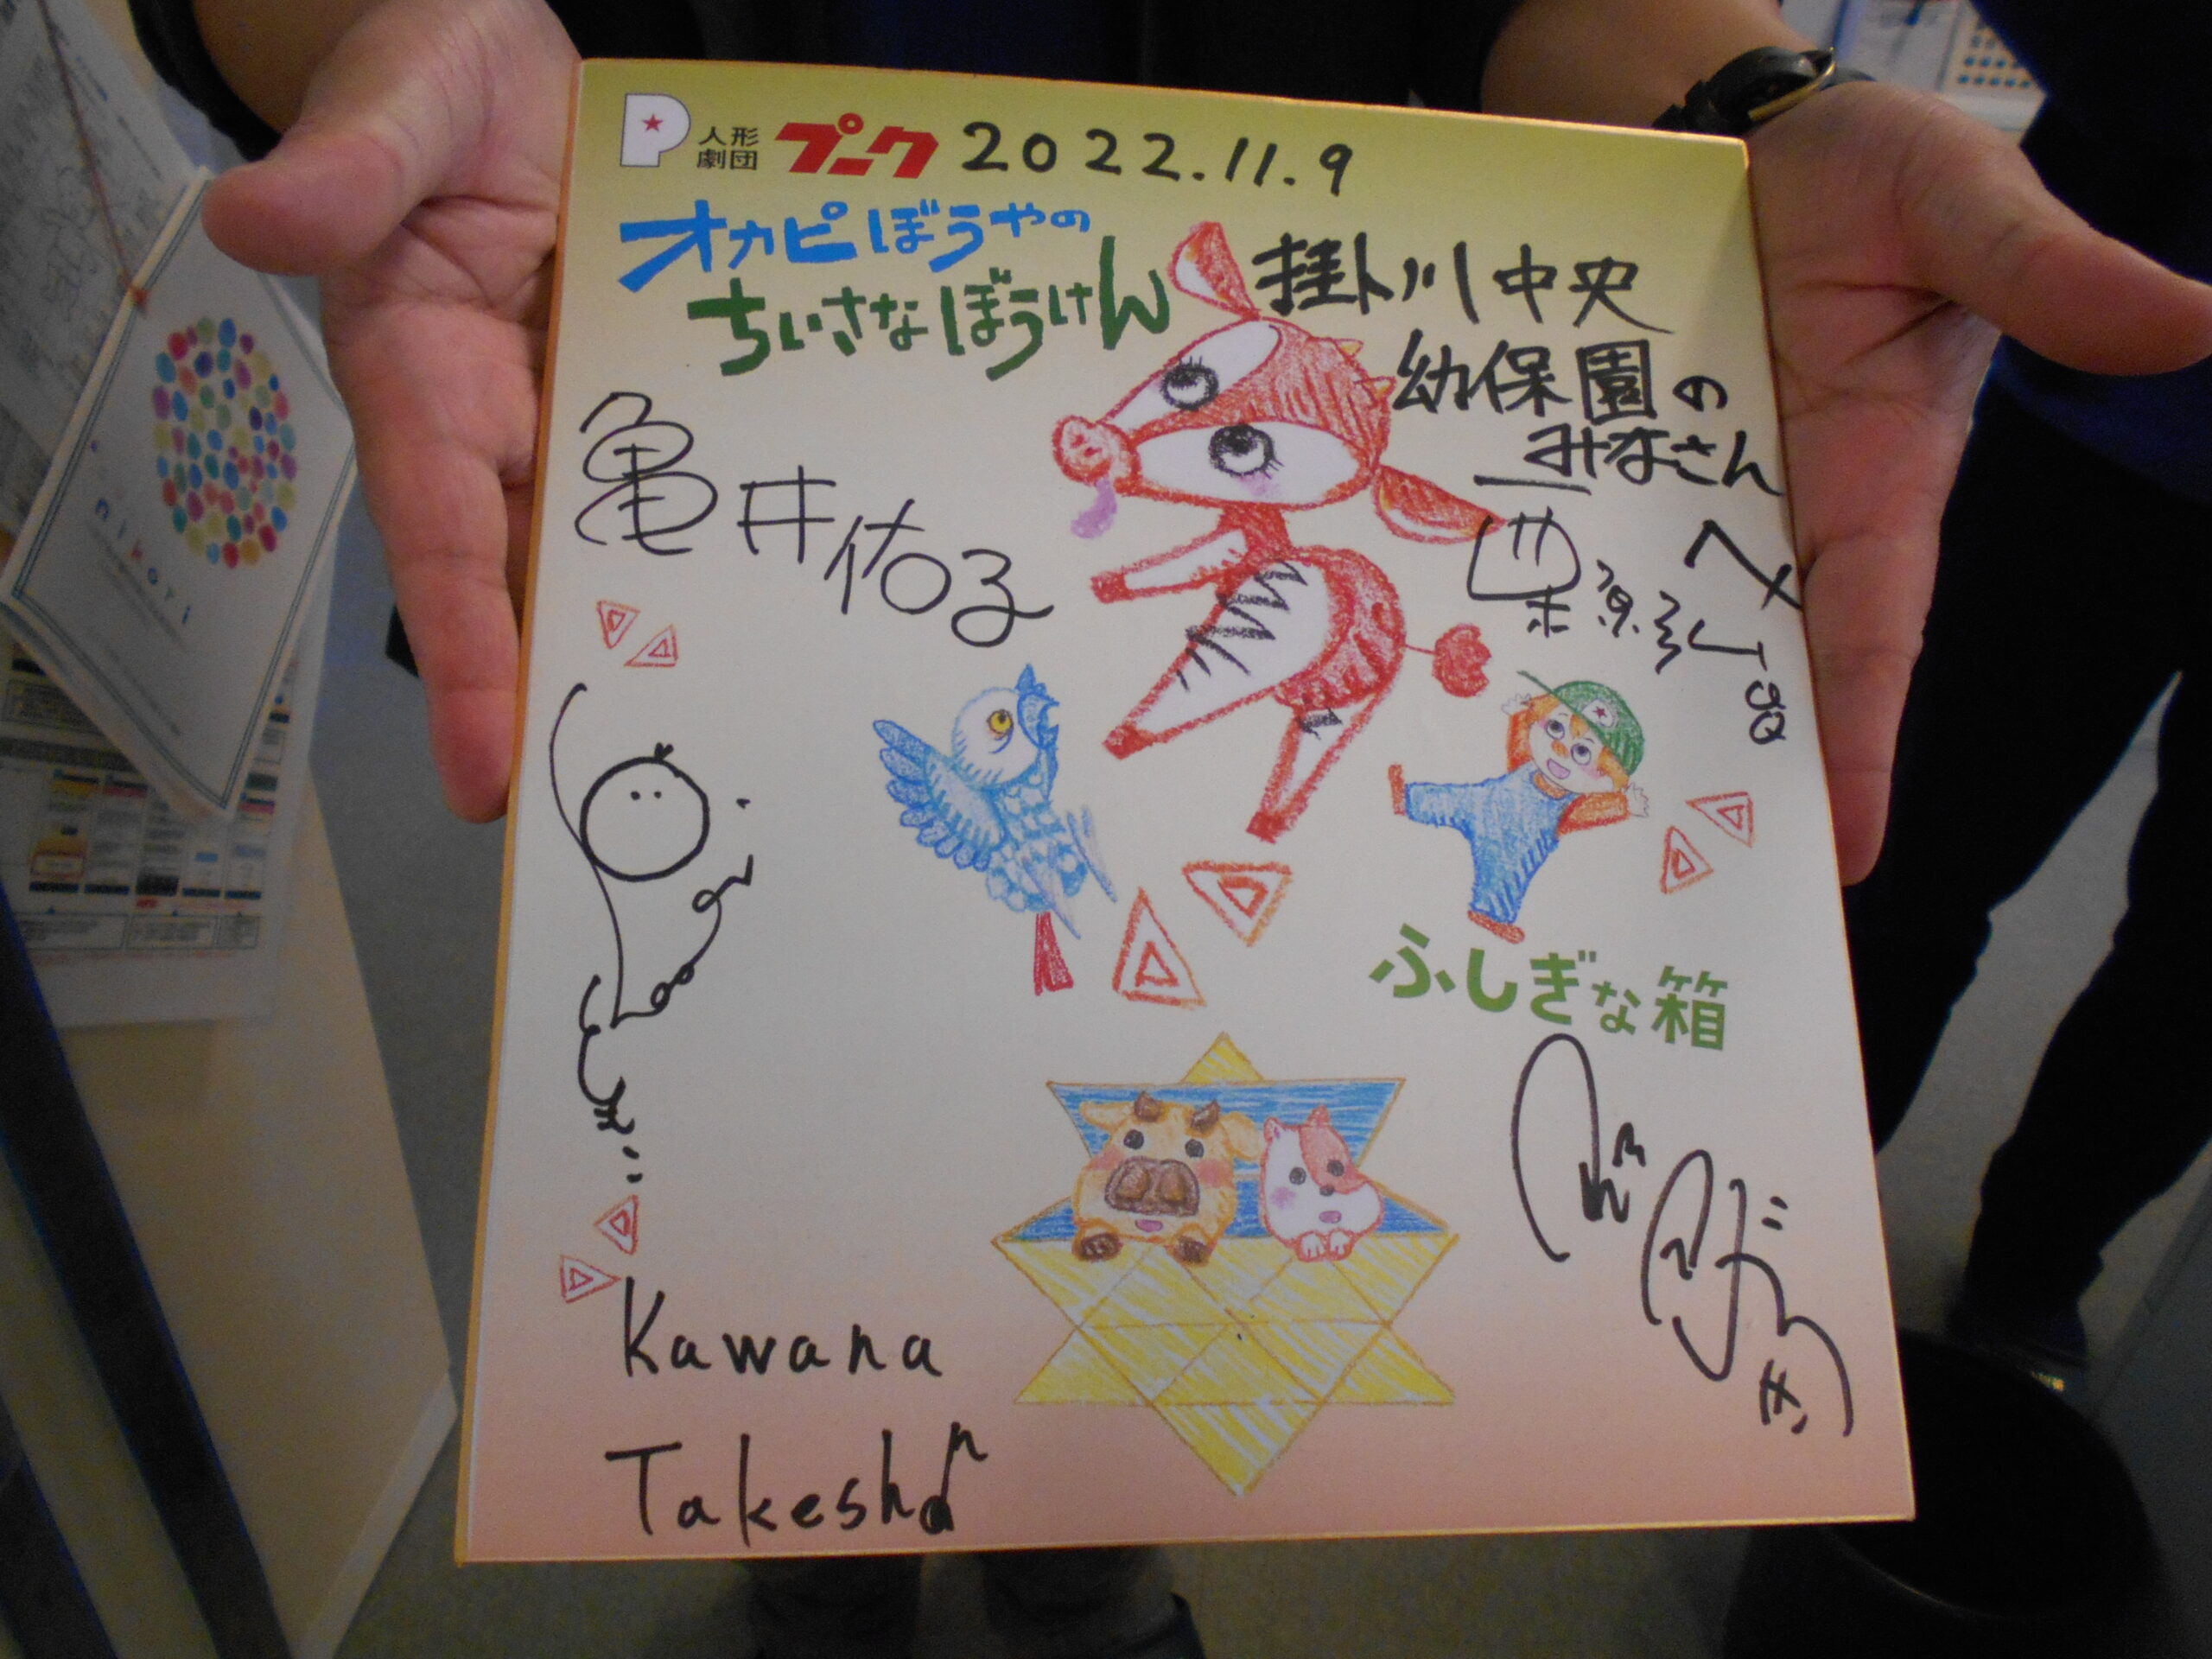 P 人形劇団 プーク 2022.11.9
オカピぼうやの
ちいさなぼうけん
掛川中央
幼保園の
みなさん
へ
亀井佑子
ふしぎな箱
Kawana
Takeshi
nikori